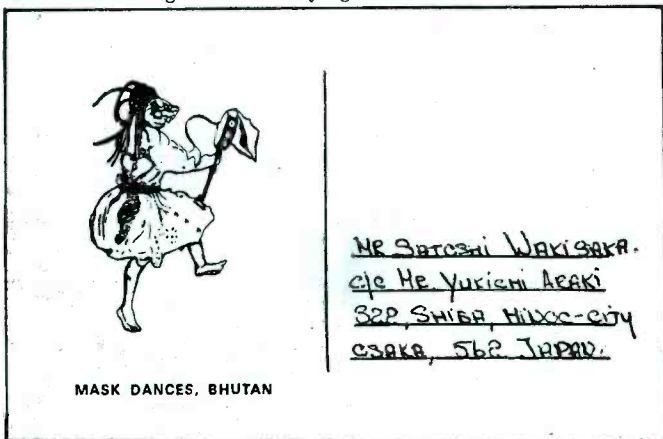 MASK DANCES, BHUTAN
MR SATOSHI WAKISAKA.
c/o MR YUKICHI ARAKI
322, SHIBA, MINOO-CITY
OSAKA, 562 JAPAN.